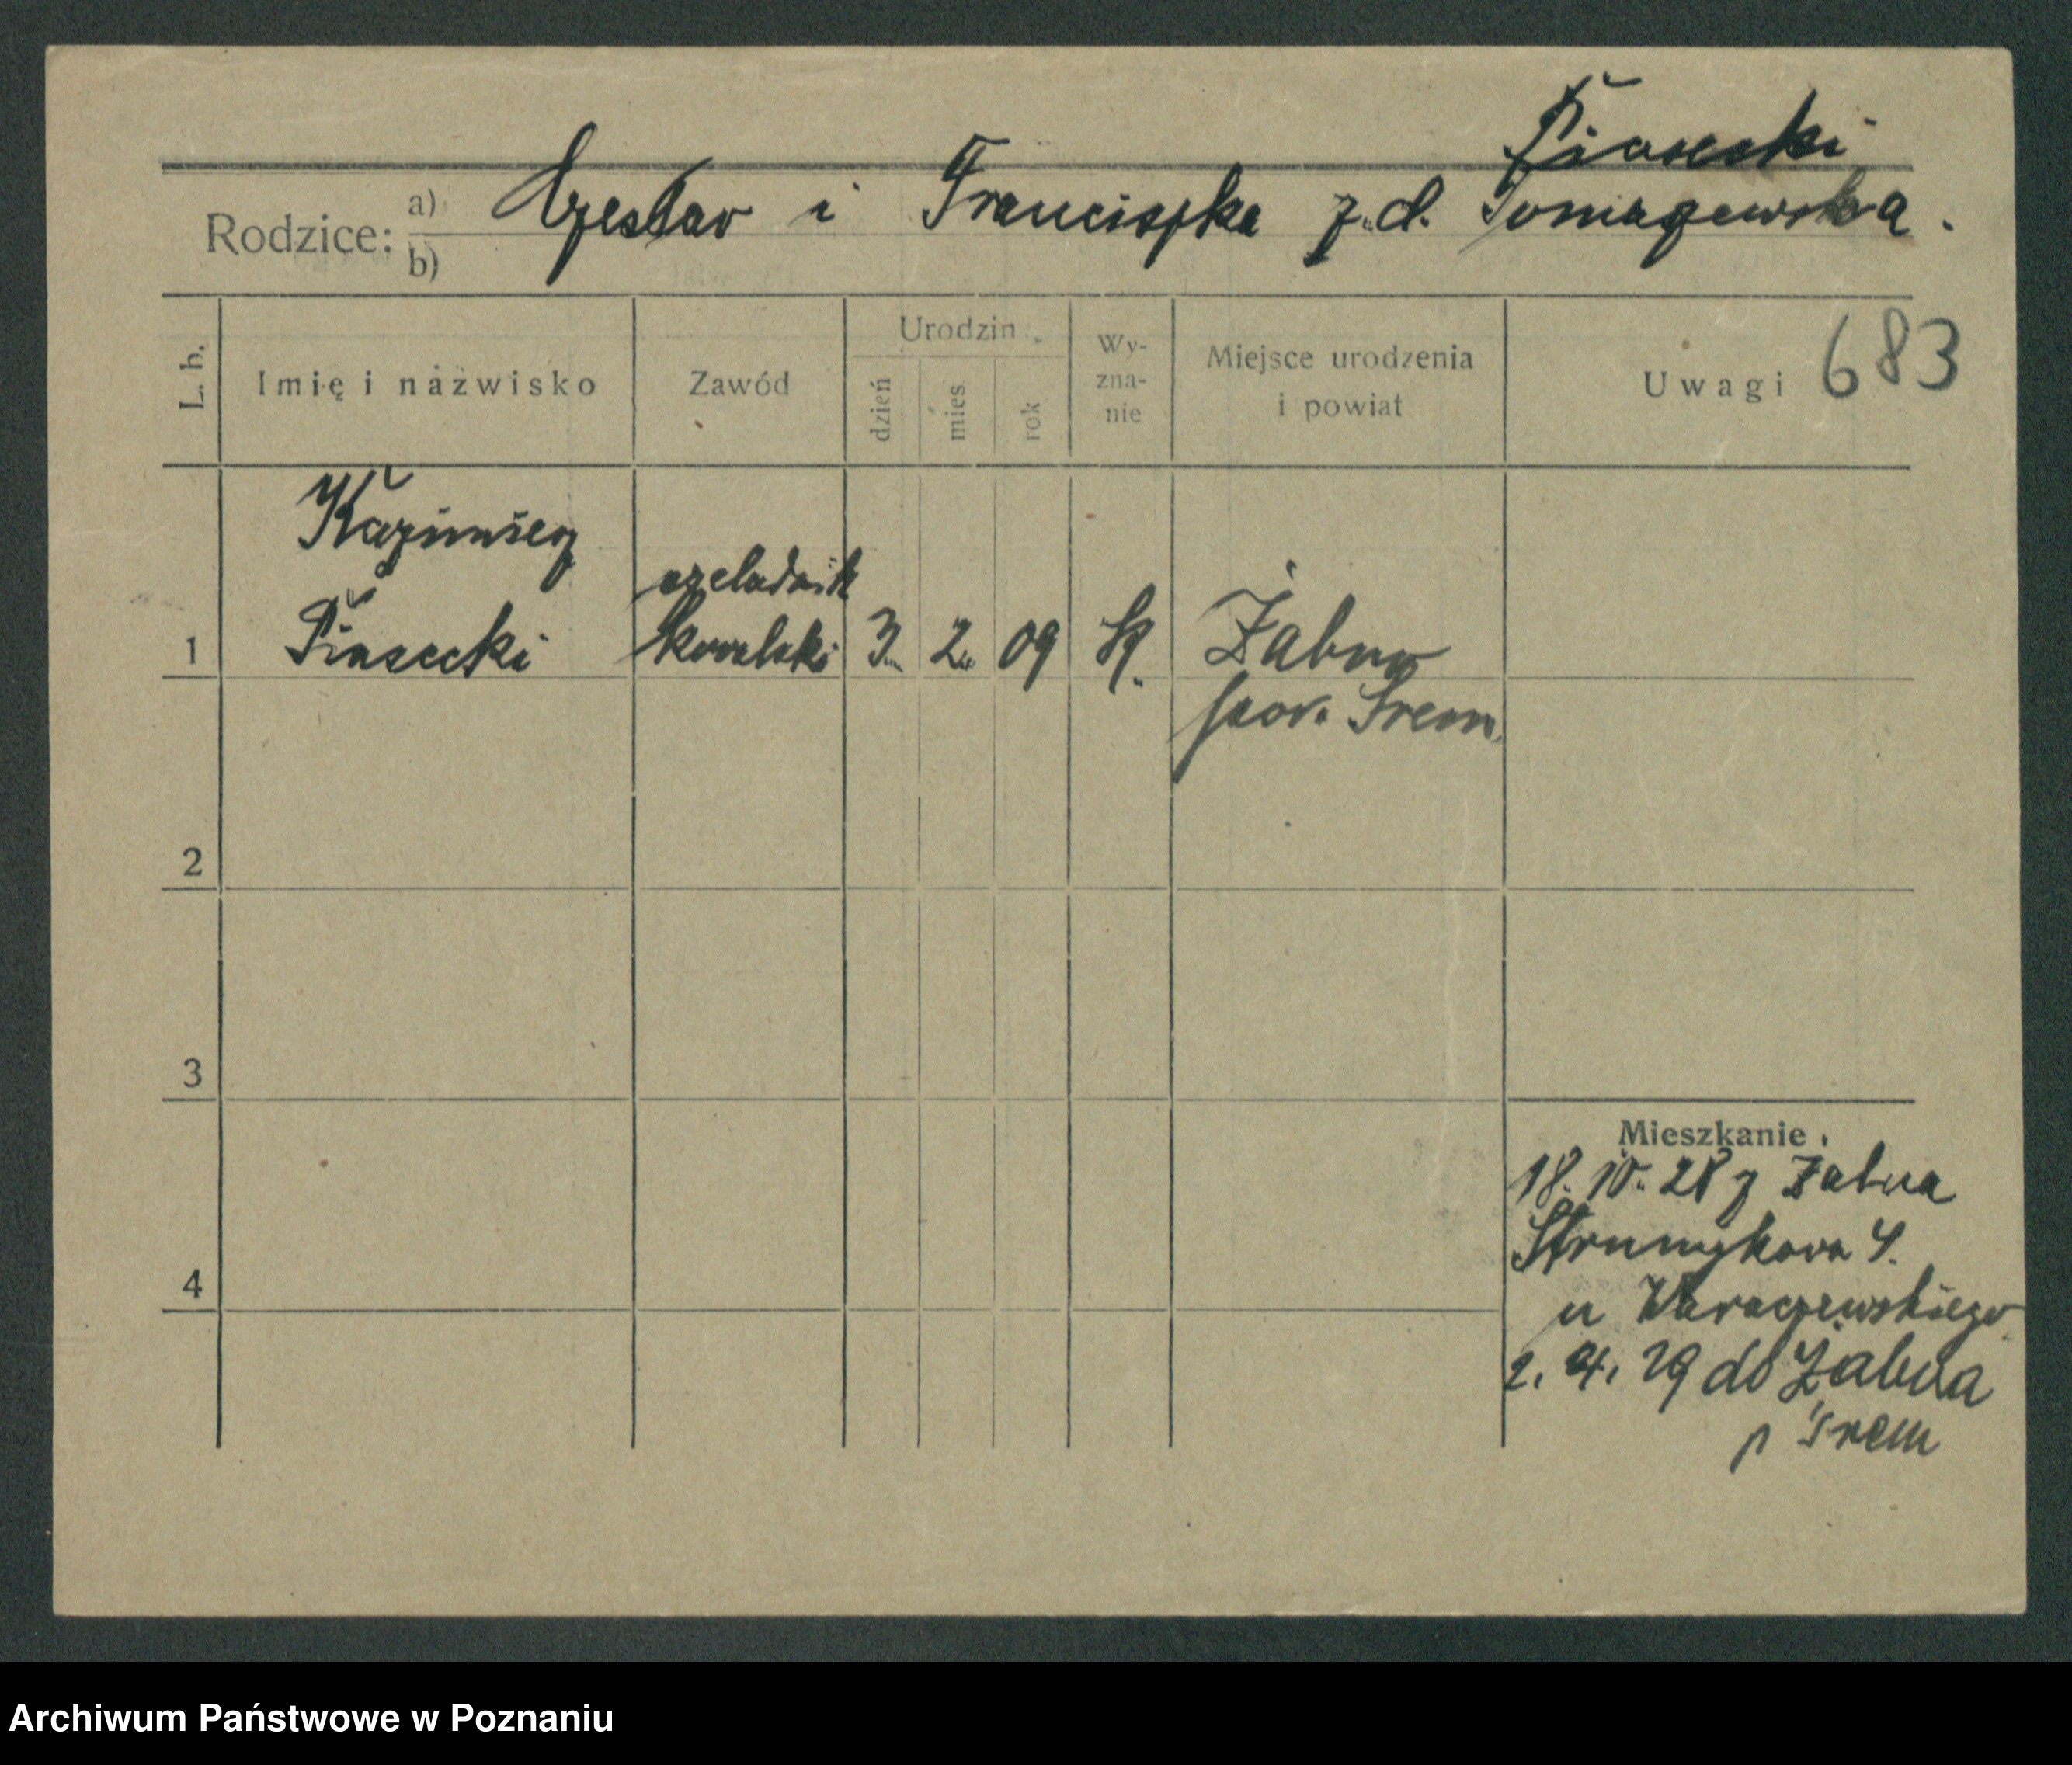 Piasecki
Rodzice: a) Czesław i Franciszka z.d. Tomaszewska.
b)
L. b. Imię i nazwisko Zawód Urodzin dzień mies. rok Wyznanie Miejsce urodzenia i powiat Uwagi 683
Kazimierz
czeladnik
1 Piasecki kowalski 3. 2. 09 K. Żabno
pow. Śrem.
2
3
Mieszkanie
18. 10. 28 z Żabna
Strumykowa 4.
4
u Waraczewskiego
2. 4. 29 do Żabna
p Śrem
Archiwum Państwowe w Poznaniu